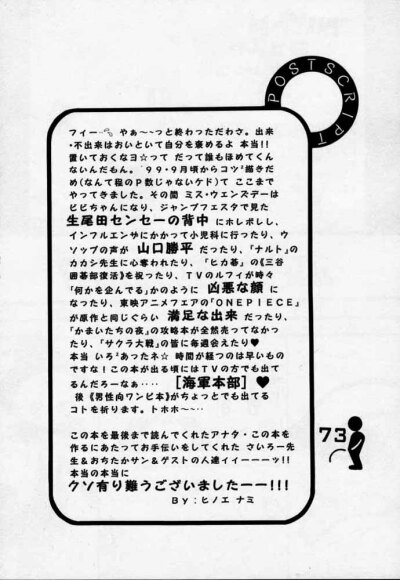 POSTSCRIPT
フィー…。 やぁ～～っと終わっただわさ。出来
・不出来はおいといて自分を褒めるよ 本当!!
置いておくなヨ☆って だって誰もほめてくん
ないんだもん。'99・9月頃からコツ²描きだ
め(なんて程のP数じゃないケド)て ここまで
やってきました。その間 ミス・ウェンズデーは
ビビちゃんになり、ジャンプフェスタで見た
生尾田センセーの背中 にホレボレし、
インフルエンサにかかって小児科に行ったり、ウ
ソップの声が 山口勝平 だったり、「ナルト」の
カカシ先生に心奪われたり、「ヒカ碁」の《三谷
囲碁部復活》を祝ったり、TVのルフィが時々
「何かを企んでる」かのように 凶悪な顔 に
なったり、東映アニメフェアの「ONEPIECE」
が原作と同じぐらい 満足な出来 だったり、
「かまいたちの夜」の攻略本が全然売ってなかっ
たり、「サクラ大戦」の皆に毎週会えたり♥
本当 いろ²あったネ☆ 時間が経つのは早いもの
ですな！この本が出る頃にはTVの方でも出て
るんだろーなぁ‥‥ [海軍本部]♥
後《男性向ワンピ本》がちょっとでも出てる
コトを祈ります。トホホ～～‥
この本を最後まで読んでくれたアナタ・この本を
作るにあたってお手伝いをしてくれた さいろー先
生&おちたかサン&ゲストの人達ィィーーーッ!!
本当の本当に
クソ有り難うございましたーー!!!
By:ヒノエ ナミ
73